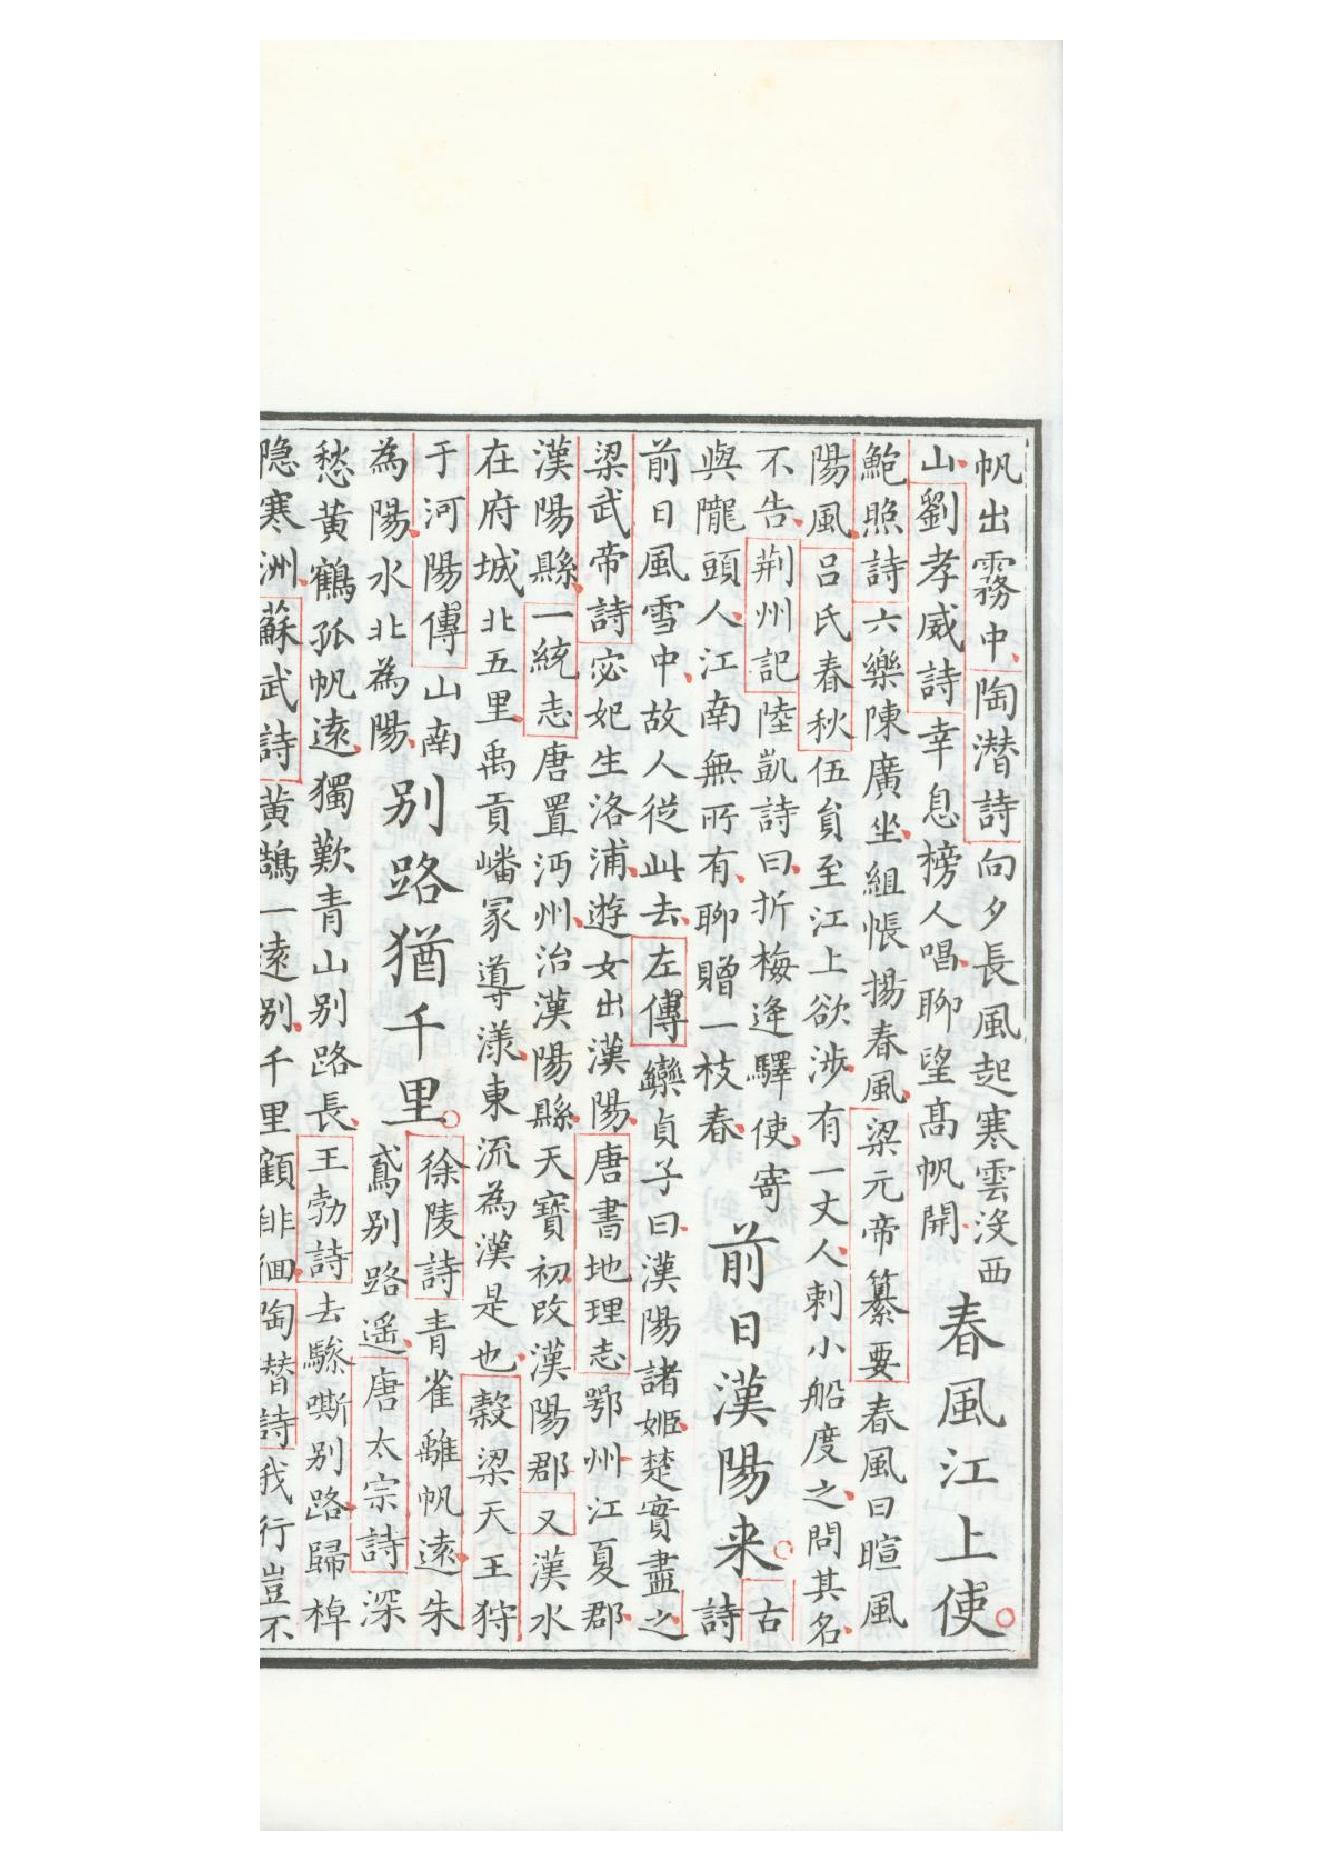 帆出霧中陶潜詩向夕長風起寒雲沒西
山劉孝威詩幸息榜人唱聊望髙帆開
春風江上使
鮑照詩六樂陳廣坐組帳揚春風梁元帝纂要春風曰暄風
陽風呂氏春秋伍員至江上欲涉有一丈人剌小船度之問其名
不告荆州記陸凱詩曰折梅逢驛使寄
與隴頭人江南無所有聊贈一枝春
前日漢陽来
古
詩
前日風雪中故人從此去左傳欒貞子曰漢陽諸姬楚實盡之
梁武帝詩宓妃生洛浦遊女出漢陽唐書地理志鄂州江夏郡
漢陽縣一統志唐置沔州治漢陽縣天寶初改漢陽郡又漢水
在府城北五里禹貢嶓冢導漾東流為漢是也穀梁天王狩
于河陽傳山南
為陽水北為陽
别路猶千里
徐陵詩青雀離帆遠朱
鳶别路遥唐太宗詩深
愁黄鶴孤帆遠獨歎青山别路長王勃詩去驂嘶别路歸棹
隐寒洲蘇武詩黄鵠一遠别千里顧徘徊陶替詩我行豈不